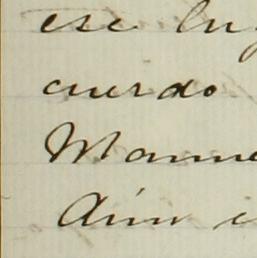 ese lug
cuerdo
Manue
Aún e